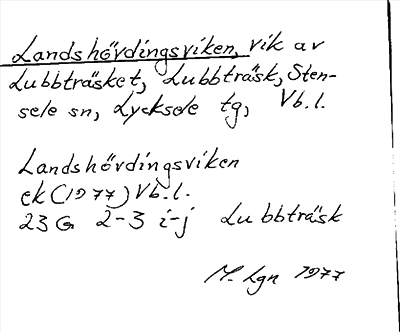 Landshövdingsviken, vik av
Lubbträsket, Lubbträsk, Sten-
sele sn, Lycksele tg, Vb.l.
Landshövdingsviken
ek (1977) Vb.l.
23 G 2-3 i-j Lubbträsk
M. Lgn 1977